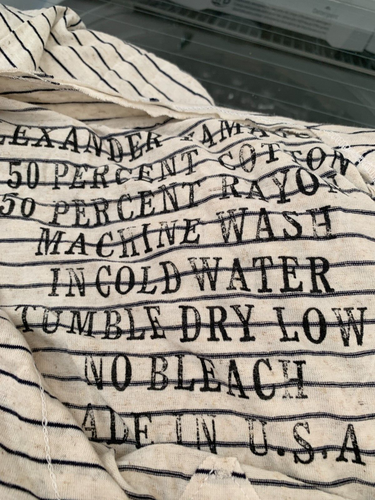 LEXANDER
50 PERCENT COTTON
50 PERCENT RAYO
MACHINE WASH
IN COLD WATER
TUMBLE DRY LOW
NO BLEACH
ADE IN U.S.A